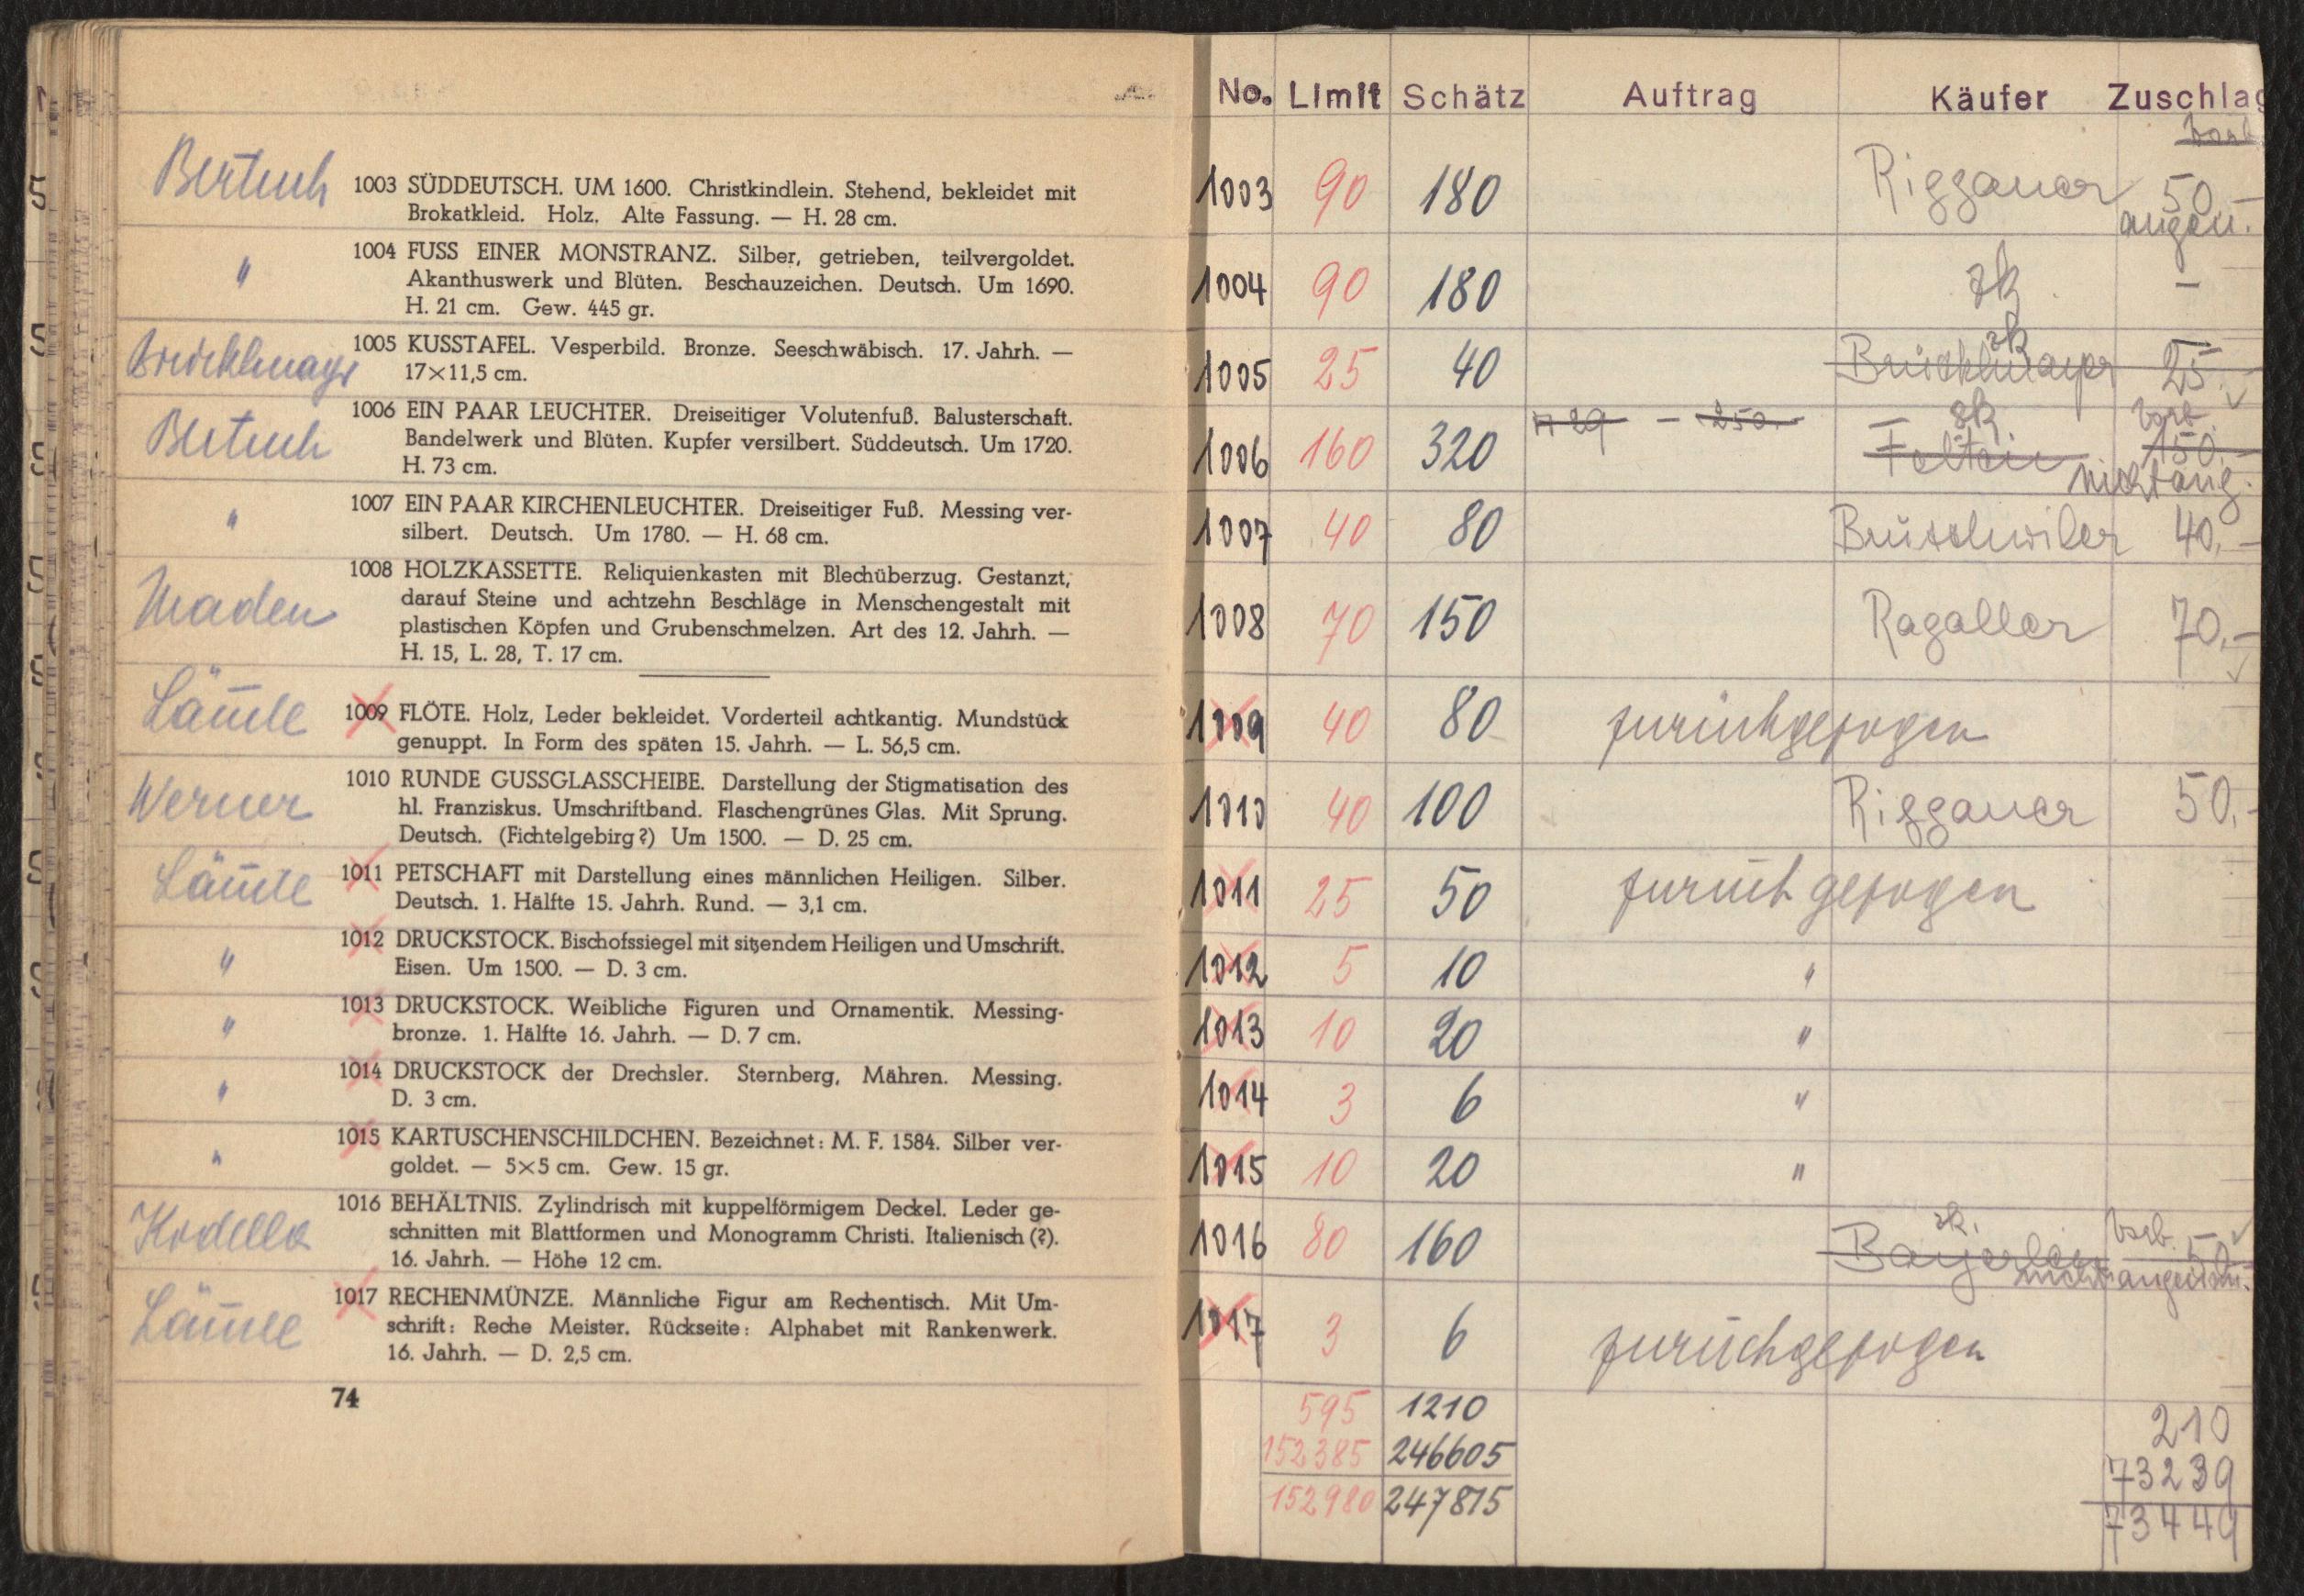 Bertuch 1003 SÜDDEUTSCH. UM 1600. Christkindlein. Stehend, bekleidet mit
Brokatkleid. Holz. Alte Fassung. — H. 28 cm.
" 1004 FUSS EINER MONSTRANZ. Silber, getrieben, teilvergoldet.
Akanthuswerk und Blüten. Beschauzeichen. Deutsch. Um 1690.
H. 21 cm. Gew. 445 gr.
1005 KUSSTAFEL. Vesperbild. Bronze. Seeschwäbisch. 17. Jahrh. —
17×11,5 cm.
Bertuch 1006 EIN PAAR LEUCHTER. Dreiseitiger Volutenfuß. Balusterschaft.
Bandelwerk und Blüten. Kupfer versilbert. Süddeutsch. Um 1720.
H. 73 cm.
" 1007 EIN PAAR KIRCHENLEUCHTER. Dreiseitiger Fuß. Messing ver-
silbert. Deutsch. Um 1780. — H. 68 cm.
Maden 1008 HOLZKASSETTE. Reliquienkasten mit Blechüberzug. Gestanzt,
darauf Steine und achtzehn Beschläge in Menschengestalt mit
plastischen Köpfen und Grubenschmelzen. Art des 12. Jahrh. —
H. 15, L. 28, T. 17 cm.
Läm̄le 1009 FLÖTE. Holz, Leder bekleidet. Vorderteil achtkantig. Mundstück
genuppt. In Form des späten 15. Jahrh. — L. 56,5 cm.
Werner 1010 RUNDE GUSSGLASSCHEIBE. Darstellung der Stigmatisation des
hl. Franziskus. Umschriftband. Flaschengrünes Glas. Mit Sprung.
Deutsch. (Fichtelgebirg?) Um 1500. — D. 25 cm.
Läm̄le 1011 PETSCHAFT mit Darstellung eines männlichen Heiligen. Silber.
Deutsch. 1. Hälfte 15. Jahrh. Rund. — 3,1 cm.
" 1012 DRUCKSTOCK. Bischofssiegel mit sitzendem Heiligen und Umschrift.
Eisen. Um 1500. — D. 3 cm.
" 1013 DRUCKSTOCK. Weibliche Figuren und Ornamentik. Messing-
bronze. 1. Hälfte 16. Jahrh. — D. 7 cm.
" 1014 DRUCKSTOCK der Drechsler. Sternberg, Mähren. Messing.
D. 3 cm.
" 1015 KARTUSCHENSCHILDCHEN. Bezeichnet: M. F. 1584. Silber ver-
goldet. — 5×5 cm. Gew. 15 gr.
Kodella 1016 BEHÄLTNIS. Zylindrisch mit kuppelförmigem Deckel. Leder ge-
schnitten mit Blattformen und Monogramm Christi. Italienisch (?).
16. Jahrh. — Höhe 12 cm.
Läm̄le 1017 RECHENMÜNZE. Männliche Figur am Rechentisch. Mit Um-
schrift: Reche Meister. Rückseite: Alphabet mit Rankenwerk.
16. Jahrh. — D. 2,5 cm.
74
No. Limit Schätz Auftrag Käufer Zuschlag
1003 90 180 Riggauer 50.—
angen.
1004 90 180 zk —
zk
1005 25 40 Brüschlmayr 25.—
zk Vorb.
1006 160 320 29 — 250.— Feltein 150.—
nicht ang.
1007 40 80 Brüschwiler 40.—
1008 70 150 Ragaller 70.—
1009 40 80 zurückgezogen
1010 40 100 Riggauer 50.—
1011 25 50 zurückgezogen
1012 5 10 "
1013 10 20 "
1014 3 6 "
1015 10 20 "
zk. Vorb.
1016 80 160 Bayerlein 50.—
nicht angenom.
1017 3 6 zurückgezogen
595 1210 210
152385 246605 73239
152980 247815 73449